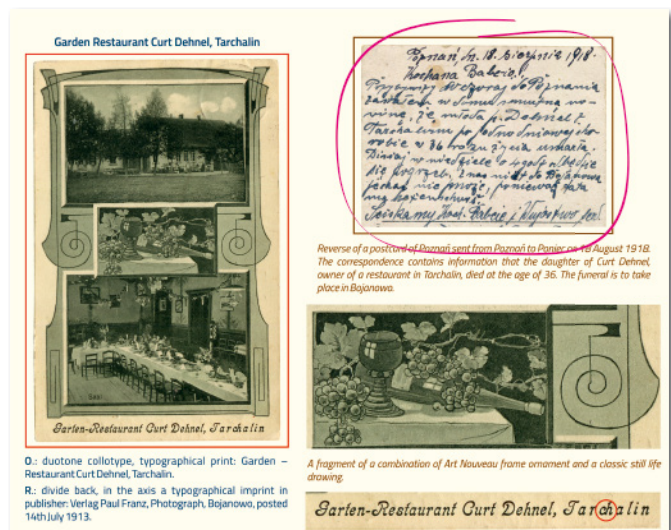 Garden Restaurant Curt Dehnel, Tarchalin
Saal
Garten-Restaurant Curt Dehnel, Tarchalin
O.: duotone collotype, typographical print: Garden –
Restaurant Curt Dehnel, Tarchalin.
R.: divide back, in the axis a typographical imprint in
publisher: Verlag Paul Franz, Photograph, Bojanowo, posted
14th July 1913.
Poznań, dn. 18. Sierpnia 1918.
Kochana Babciu!
Przyjechawszy wczoraj do Poznania
zastałem w domu smutną no-
winę, że młoda p. Dehnel z
Tarchalina po jednodniowej cho-
robie w 36 roku życia umarła.
Dzisiaj w niedzielę o 4 godz. odbędzie
się pogrzeb. Z nas nikt do Bojanowa
jechać nie może, ponieważ
Reverse of a postcard of Poznań sent from Poznań to Panier on 18 August 1918.
The correspondence contains information that the daughter of Curt Dehnel,
owner of a restaurant in Tarchalin, died at the age of 36. The funeral is to take
place in Bojanowo.
A fragment of a combination of Art Nouveau frame ornament and a classic still life
drawing.
Garten-Restaurant Curt Dehnel, Tarchalin